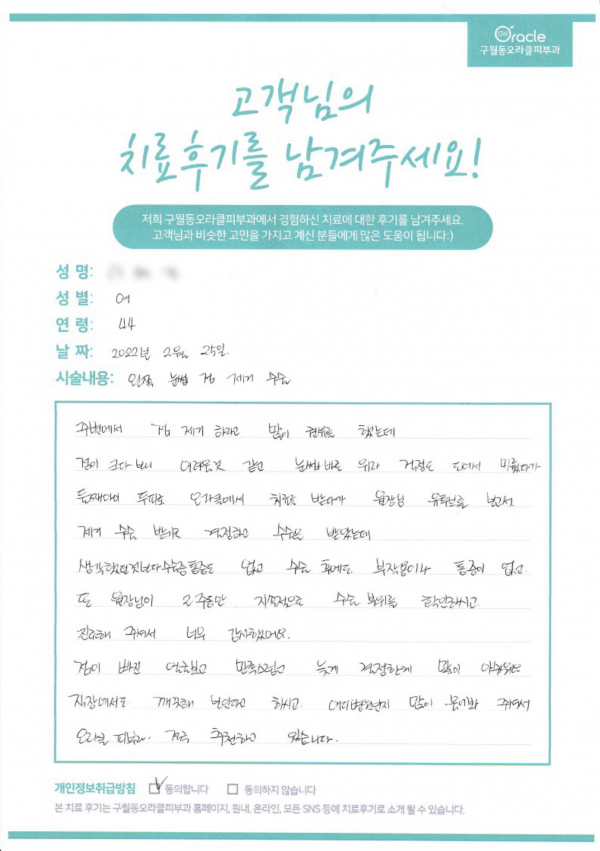 Oracle
구월동오라클피부과
고객님의
치료후기를 남겨주세요!
저희 구월동오라클피부과에서 경험하신 치료에 대한 후기를 남겨주세요.
고객님과 비슷한 고민을 가지고 계신 분들에게 많은 도움이 됩니다:)
성 명:
성 별: 여
연 령: 44
날 짜: 2022년 2월 25일.
시술내용: 왼쪽 눈썹 점 제거 수술
주변에서 점 제거 하라고 많이 권유를 했는데
점이 크다 보니 어려운것 같고 눈썹 바로 위라 걱정도 되어서 미뤘다가
두피로 오라클에서 치료를 받다가 원장님 유튜브를 보고서
제거 수술 받기로 결정하고 수술을 받았는데
생각했던것보다 수술중 통증도 없고 수술 후에도 부작용이나 통증이 없고
또 원장님이 2주동안 지속적으로 수술 부위를 확인해주시고
진료해 주셔서 너무 감사했어요.
점이 빠진 만족스럽고 늦게 결정한게 많이 아쉬워요
직장에서도 깨끗해 보인다고 하시고 많이 물어봐 주셔서
오라클 피부과 적극 추천하고 있습니다.
개인정보취급방침 동의합니다 동의하지 않습니다
본 치료 후기는 구월동오라클피부과 홈페이지, 원내, 온라인, 모든 SNS 등에 치료후기로 소개 될 수 있습니다.